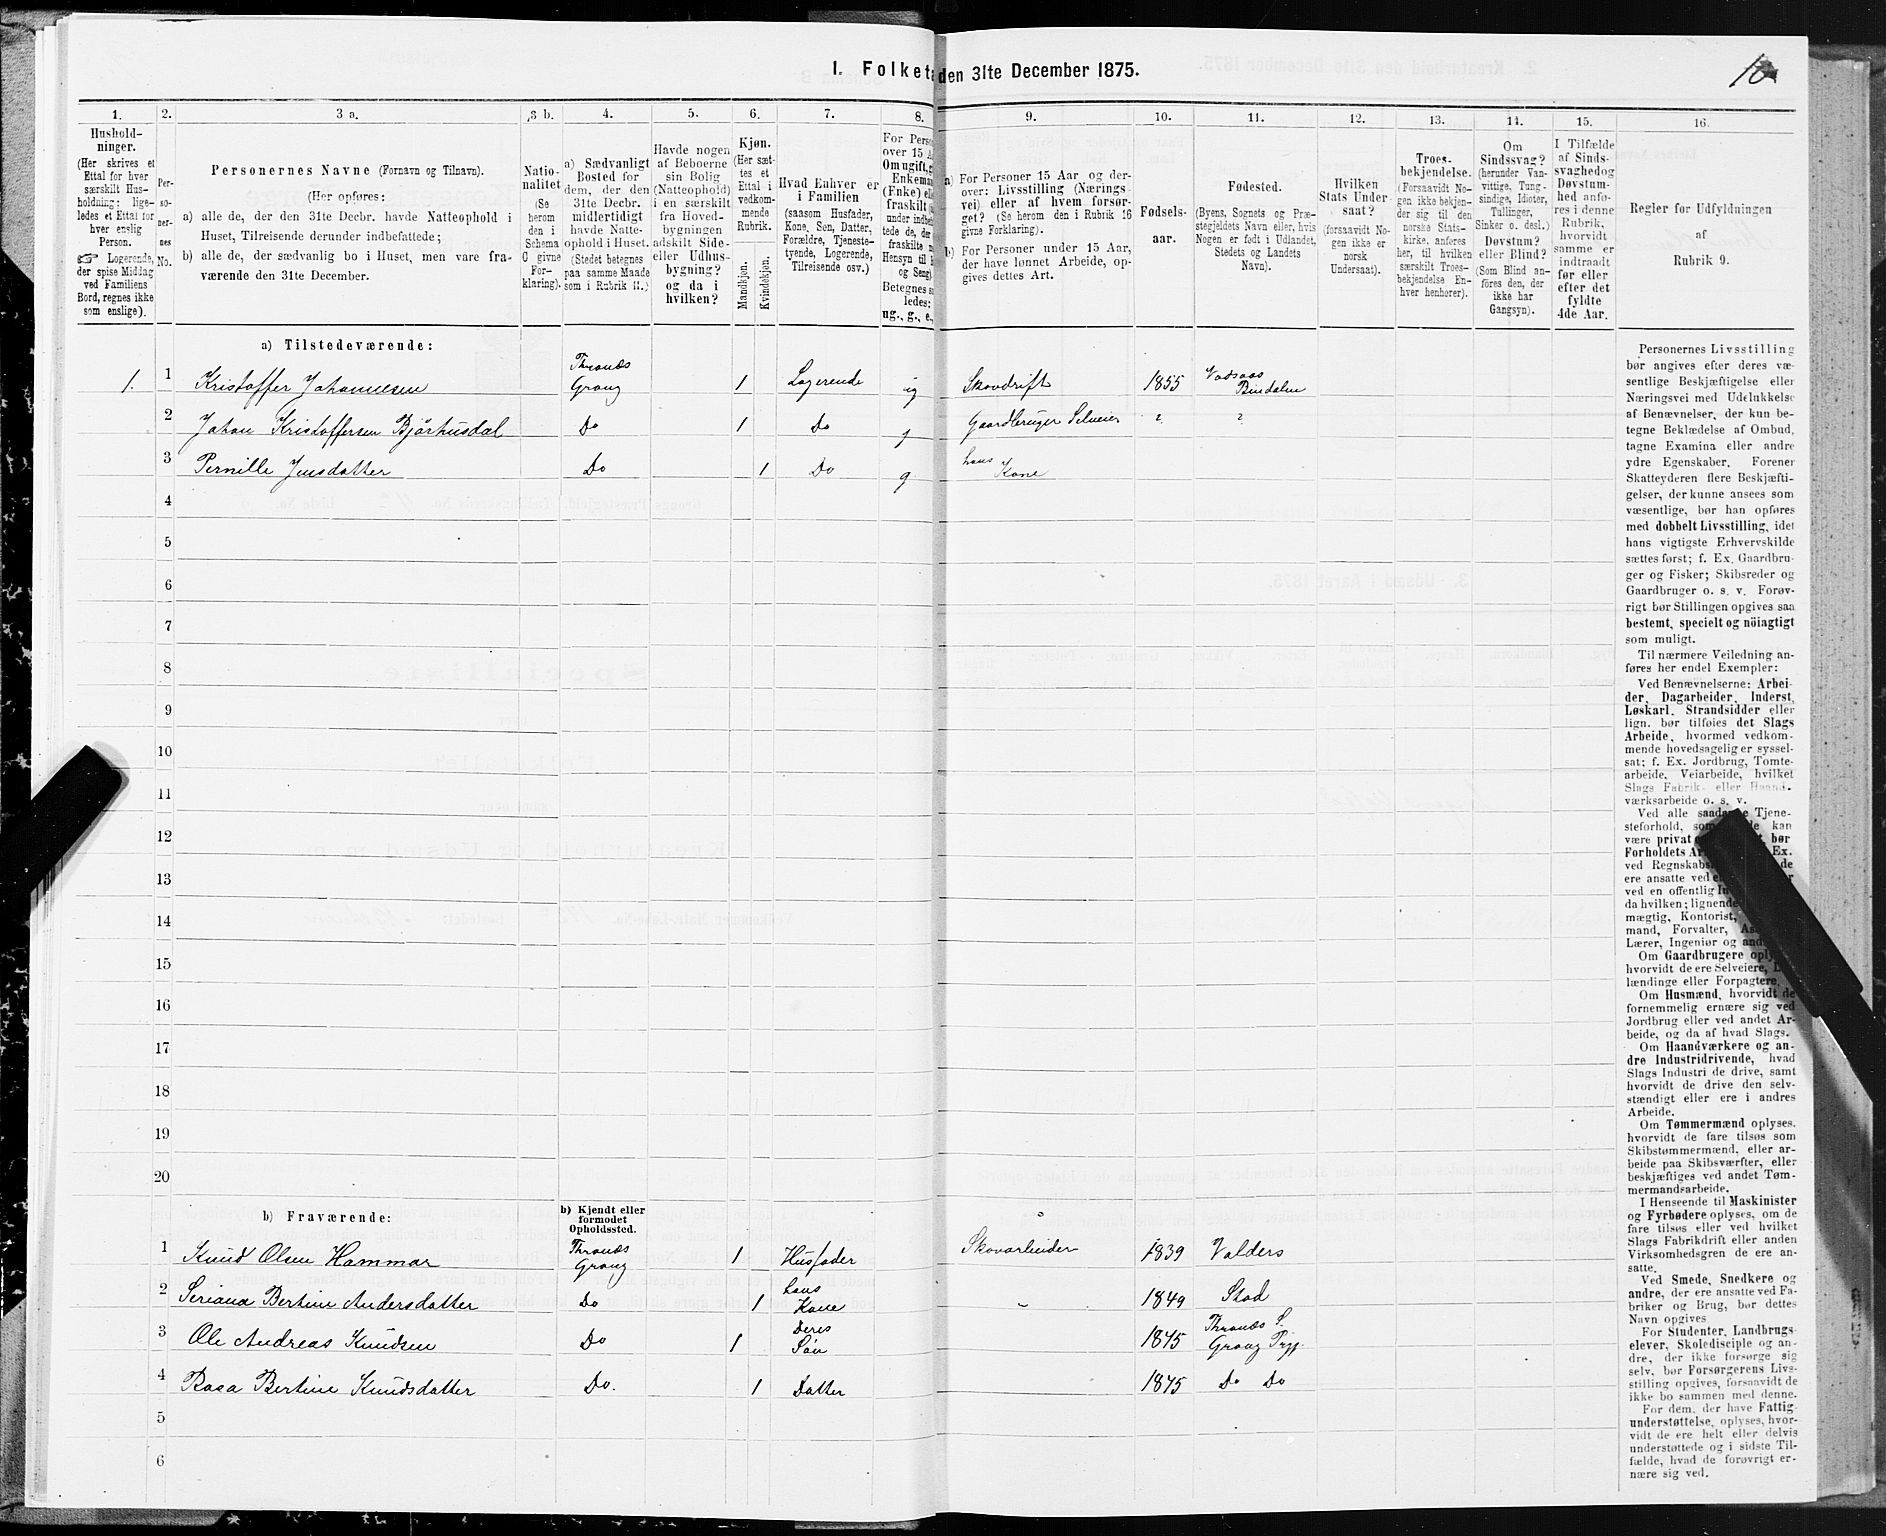 I. Folketæ den 31te December 1875.
10
1. 2. 3 a. 3 b. 4. 5. 6. 7. 8. 9. 10. 11. 12. 13. 14. 15. 16.
Hushold-
ninger.
(Her skrives et
Ettal for hver
særskilt Hus-
holdning; lige-
ledes et Ettal for
hver enslig
Person.
☞ Logerende,
der spise Middag
ved Familiens
Bord, regnes ikke
som enslige).
Per-
so-
ner-
nes
No.
Personernes Navne (Fornavn og Tilnavn).
(Her opføres:
a) alle de, der den 31te Decbr. havde Natteophold i
Huset, Tilreisende derunder indbefattede;
b) alle de, der sædvanlig bo i Huset, men vare fra-
værende den 31te December.
Natio-
nalitet
(Se
herom
den i
Schema
C givne
For-
klaring).
a) Sædvanligt
Bosted for
dem, der den
31te Decbr.
midlertidigt
havde Natte-
ophold i Huset.
(Stedet betegnes
paa samme Maade
som i Rubrik 11.)
Havde nogen
af Beboerne
sin Bolig
(Natteophold)
i en særskilt
fra Hoved-
bygningen
adskilt Side-
eller Udhus-
bygning?
og da i
hvilken?
Kjøn.
(Her sæt-
tes et
Ettal i
vedkom-
mende
Rubrik.
Mandkjøn.
Kvindekjøn.
Hvad Enhver er
i Familien
(saasom Husfader,
Kone, Søn, Datter,
Forældre, Tjeneste-
tyende, Logerende,
Tilreisende osv.)
For Pers
over 15 A
Om ugift, g
Enkeman
(Enke) ell
fraskilt (
under indbe
tede de, der
fraskilte m
Hensyn til
og Seng).
Betegnes s
ledes:
ug., g., e.,
a) For Personer 15 Aar og der-
over: Livsstilling (Nærings-
vei) eller af hvem forsør-
get? (Se herom den i Rubrik 16
givne Forklaring).
b) For Personer under 15 Aar,
der have lønnet Arbeide, op-
gives dettes Art.
Fødsels-
aar.
Fødested.
(Byens, Sognets og Præ-
stegjeldets Navn eller, hvis
Nogen er født i Udlandet,
Stedets og Landets
Navn).
Hvilken
Stats Under-
saat?
(forsaavidt No-
gen ikke er
norsk
Undersaat).
Troes-
bekjendelse.
(Forsaavidt No-
gen ikke bekjen-
der sig til den
norske Stats-
kirke, anføres
her, til hvilken
særskilt Troes-
bekjendelse En-
hver henhører).
Om
Sindssvag?
(herunder Van-
vittige, Tung-
sindige, Idioter,
Tullinger,
Sinker o. desl.)
Døvstum?
eller Blind?
(Som Blind an-
føres den, der
ikke har
Gangsyn).
I Tilfælde
af Sinds-
svaghed og
Døvstum-
hed anfø-
res i denne
Rubrik,
hvorvidt
samme er
indtraadt
før eller
efter det
fyldte
4de Aar.
Regler for Udfyldningen
af
Rubrik 9.
a) Tilstedeværende:
1. 1 Kristoffer Johannesen Thronæs Grong 1 Logerende ug Skovdrift 1855 Vadsaas Bindalen
2 Johan Kristoffersen Bjørhusdal Do 1 Do g Gaardbruger Selveier ? ?
3 Pernille Jensdatter Do 1 Do g hans Kone
4
5
6
7
8
9
10
11
12
13
14
15
16
17
18
19
20
b) Fraværende:
b) Kjendt eller
formodet
Opholdssted.
1 Knud Olsen Hammar Thronæs Grong 1 Husfader Skovarbeider 1839 Valders
2 Seriana Bertine Andersdatter Do 1 hans Kone 1849 Stod
3 Ole Andreas Knudsen Do 1 Deres Søn 1875 Thronæs S. Grong Prgj.
4 Rasa Bertine Knudsdatter Do. 1 Datter 1875 Do Do
5
6
Personernes Livsstilling
bør angives efter deres væ-
sentlige Beskjæftigelse eller
Næringsvei med Udelukkelse
af Benævnelser, der kun be-
tegne Beklædelse af Ombud,
tagne Examina eller andre
ydre Egenskaber. Forener
Skatteyderen flere Beskjæfti-
gelser, der kunne ansees som
væsentlige, bør han opføres
med dobbelt Livsstilling, idet
hans vigtigste Erhvervskilde
sættes først; f. Ex. Gaardbru-
ger og Fisker; Skibsreder og
Gaardbruger o. s. v. Forøv-
rigt bør Stillingen opgives saa
bestemt, specielt og nöiagtigt
som muligt.
Til nærmere Veiledning an-
føres her endel Exempler:
Ved Benævnelserne: Arbei-
der, Dagarbeider, Inderst,
Løskarl, Strandsidder eller
lign. bør tilføies det Slags
Arbeide, hvormed vedkom-
mende hovedsagelig er syssel-
sat; f. Ex. Jordbrug, Tomte-
arbeide, Veiarbeide, hvilket
Slags Fabrik- eller Haand-
værksarbeide o. s. v.
Ved alle saadanne Tjene-
steforhold, som kan
være privat bør
Forholdets Ar Ex.
ved Regnskabs de
ere ansatte ved
ved en offentlig
da hvilken; lignende
mægtig, Kontorist,
mand, Forvalter, As
Lærer, Ingeniør og and
Om Gaardbrugere oply
hvorvidt de ere Selveiere,
lændinge eller Forpagtere.
Om Husmænd, hvorvidt de
fornemmelig ernære sig ved
Jordbrug eller ved andet Ar-
beide, og da af hvad Slags.
Om Haandværkere og an-
dre Industridrivende, hvad
Slags Industri de drive, samt
hvorvidt de drive den selv-
stændigt eller ere i andres
Arbeide.
Om Tømmermænd oplyses,
hvorvidt de fare tilsøs som
Skibstømmermænd, eller ar-
beide paa Skibsværfter, eller
beskjæftiges ved andet Tøm-
mermandsarbeide.
I Henseende til Maskinister
og Fyrbødere oplyses, om de
fare tilsøs eller ved hvilket
Slags Fabrikdrift eller anden
Virksomhedsgren de ere an-
satte.
Ved Smede, Snedkere og
andre, der ere ansatte ved Fa-
briker og Brug, bør dettes
Navn opgives
For Studenter, Landbrugs-
elever, Skoledisciple og an-
dre, der ikke forsørge sig
selv, bør Forsørgerens Livs-
stilling opgives, forsaavidt de
ikke bo sammen med denne.
For dem, der have Fattig-
understøttelse, oplyses, hvor-
vidt de ere helt eller delvis
understøttede og i sidste Til-
fælde, hvad de forøvrigt er-
nære sig ved.